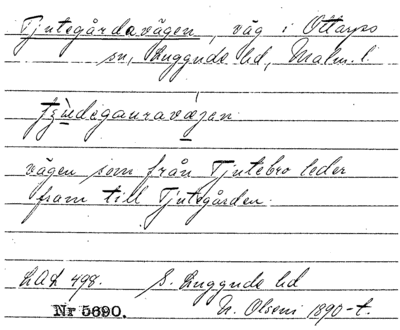 Tjutsgårdavägen, väg i Ottarps
sn, Luggude hd, Malm. l.
vägen som från Tjutebro leder
fram till Tjutsgården.
LAL 498. S. Luggude hd
Nr 5690. N. Olseni 1890-t.